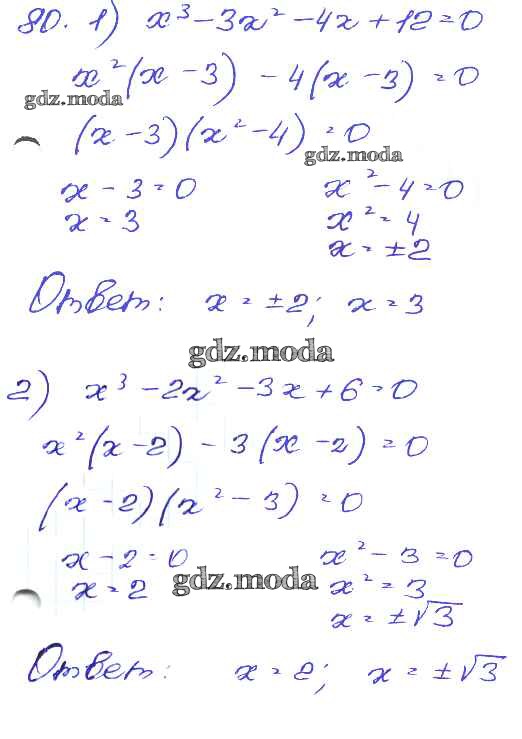 80. 1) x³ - 3x² - 4x + 12 = 0
x²(x - 3) - 4(x - 3) = 0
gdz.moda
(x - 3)(x² - 4) = 0
gdz.moda
x - 3 = 0 x² - 4 = 0
x = 3 x² = 4
x = ±2
Ответ: x = ±2; x = 3
gdz.moda
2) x³ - 2x² - 3x + 6 = 0
x²(x - 2) - 3(x - 2) = 0
(x - 2)(x² - 3) = 0
x - 2 = 0 x² - 3 = 0
gdz.moda
x = 2 x² = 3
x = ±√3
Ответ: x = 2; x = ±√3